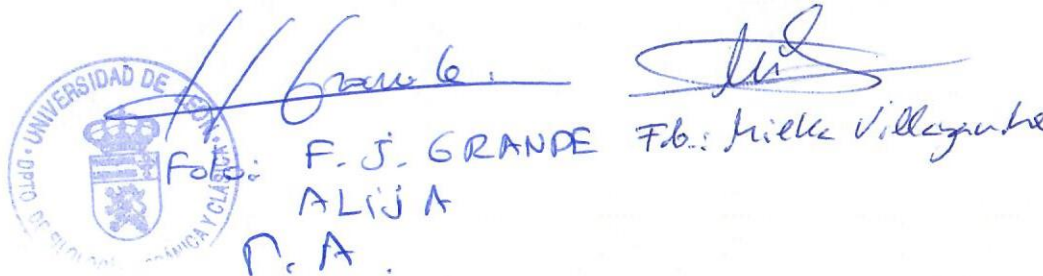 UNIVERSIDAD DE LEÓN
DPTO. DE FILOLOGÍA HISPÁNICA Y CLÁSICA
Grande
Fdo: F. J. GRANDE
ALIJA
P. A.
Fdo.: Mielka